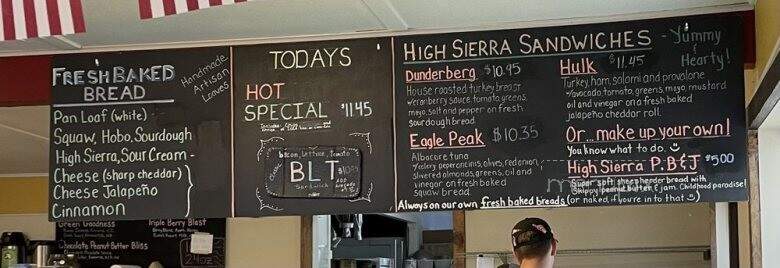 FRESH BAKED
BREAD
Handmade
Artisan
Loaves
Pan Loaf (white)
Squaw, Hobo, Sourdough
High Sierra, Sour Cream
Cheese (sharp cheddar)
Cheese Jalapeño
Cinnamon
TODAYS
HOT
SPECIAL $11.45
bacon, lettuce, tomato
BLT
Sandwich
HIGH SIERRA SANDWICHES - Yummy
& Hearty!
Dunderberg $10.45
House roasted turkey breast
w/cranberry sauce, tomato, greens,
mayo, salt and pepper on fresh
sourdough bread.
Eagle Peak $10.35
Albacore tuna
w/celery, peperoncinis, olives, red onion,
slivered almonds, greens, oil and
vinegar on fresh baked
squaw bread
Hulk $11.45
Turkey, ham, salami and provolone
w/avocado, tomato, greens, mayo, mustard
oil and vinegar on a fresh baked
jalapeño cheddar roll.
Or... make up your own!
You know what to do.
High Sierra P.B & J $5.00
Super soft shepherder bread with
Skippy peanut butter & jam. Childhood paradise!
(or naked, if you're in to that)
Always on our own fresh baked breads
Green Goodness
Triple Berry Blast
Chocolate Peanut Butter Bliss
24oz